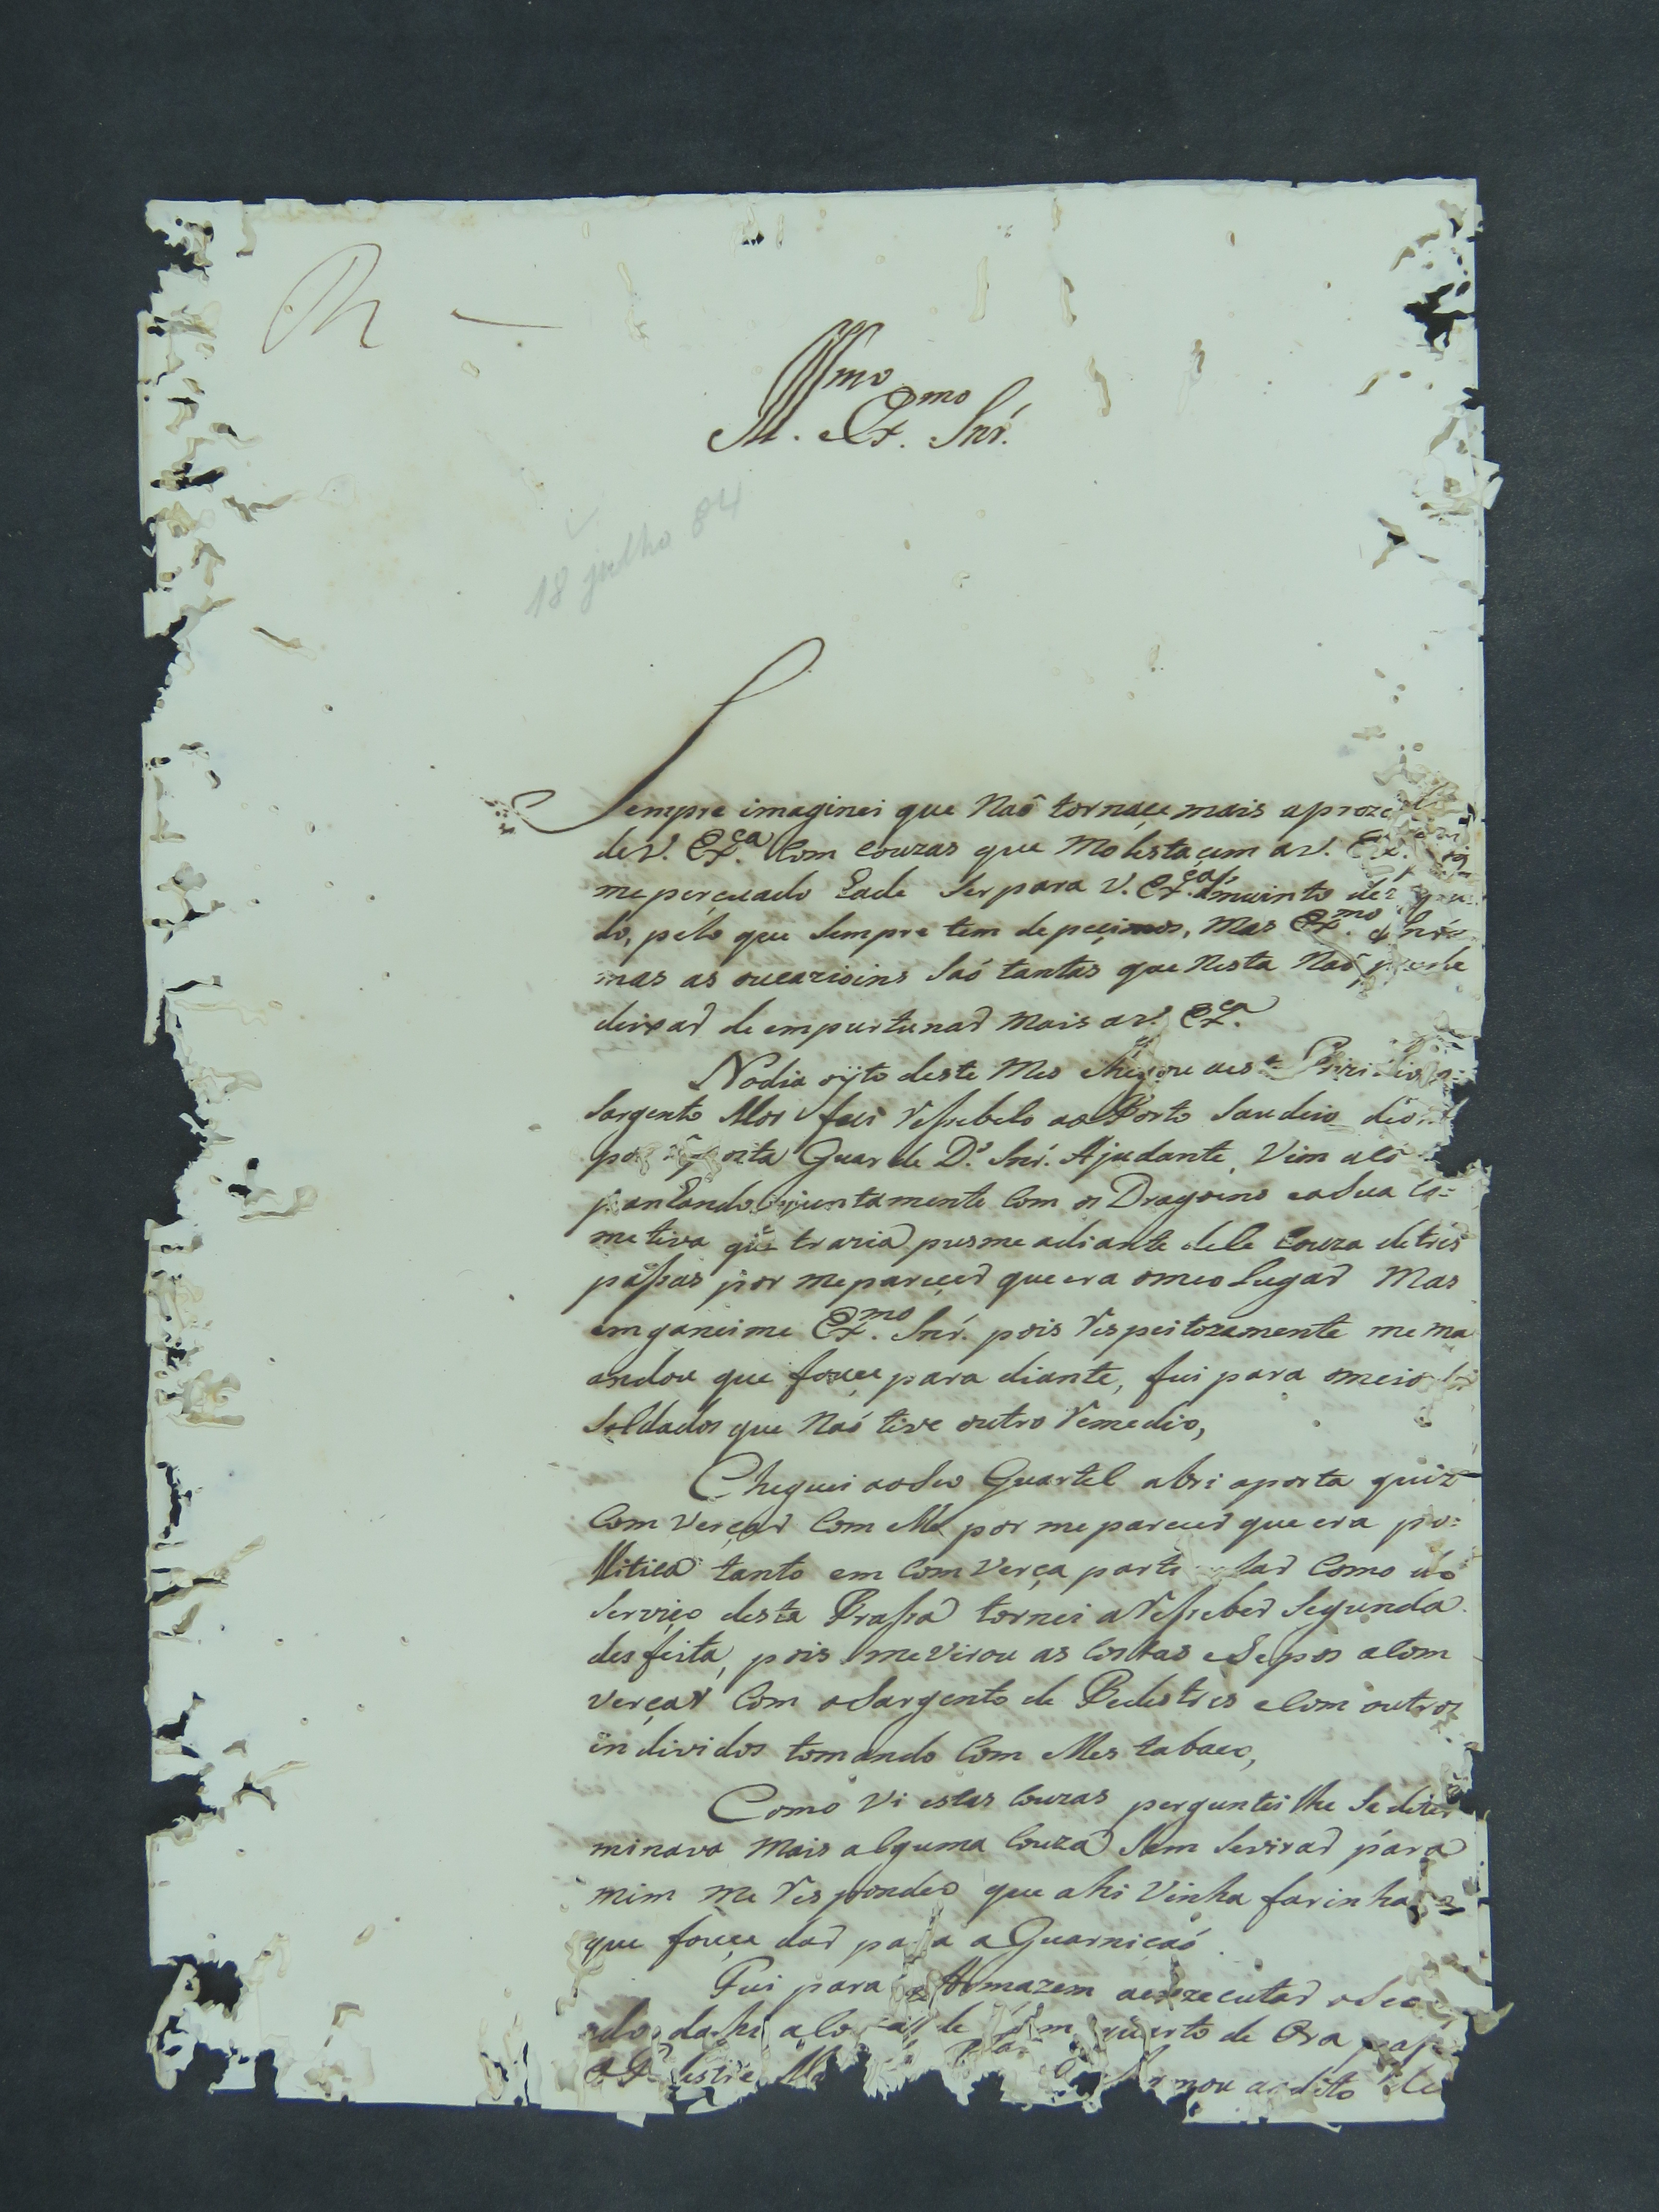 R
Ill.mo
e Ex.mo Snr.
18 julho 84
Sempre imaginei que Naõ tornaçe mais aproze
de V. Ex.ça Com couzas que Molestaçem aV. Ex.
me perçuado Eade Ser para V. Ex.ça muinto
do, pélo que Sempre tem depeçimos, Mas Ex.mo Snr.
mas as oucazioins Saó tantas que Nesta Naõ
deixar de empurtunar Mais aV. Ex.ça
Nodia oÿto deste Mes Chegou aeste Prizidio
Sargento Mor fui Ressebelo ao Porto Saudeio
Guar de D.s Snr. Ajudante, Vim
juntamente Com os Dragoins ea Sua Co=
metiva que trazia pusme adiante dele Couza detres
passas por me pareçer que era omeo Lugar Mas
emganeime Ex.mo Snr. pois Respeitozamente me ma
andou que foçe para diante, fui para omeio
Soldados que Naó tive outro Remedio,
Cheguei aoSeo Quartel abri aporta quiz
Com Verçar Com elle por me pareçer que era po=
llitica tanto em Com Verça Como no
Serviço desta Prassa tornei aResseber Segunda
desfeita, pois me virou as Costas eSepos aCom
Verçar Com oSargento de Pedestres eCom outros
individos tomando Com elles tabaco,
Como Vi estas Couzas perguntei lhe Se deter
minava Mais alguma Couza Sem Sevirar para
mim me Respondeo que ahi Vinha farinha
que foçe dar para a Guarniçaó.
Fui para Armazem aeizecutar oSeo
quarto de Ora